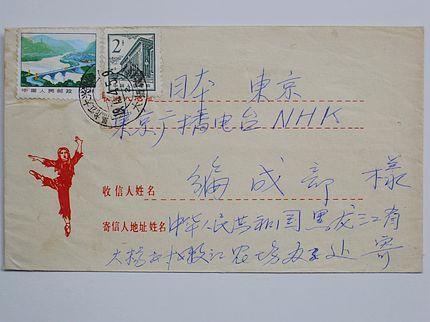 中国人民邮政
2分
日本 東京
東京广播电台 NHK
收信人姓名 編成部 樣
寄信人地址姓名 中华人民共和国黑龙江省
嫩江农场 处 寄